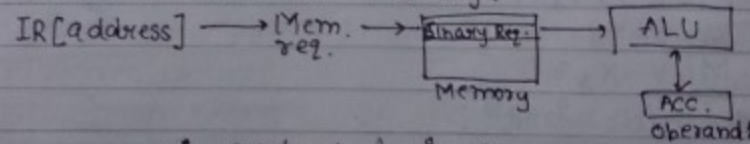 IR[address] → Mem. req. → Binary Req. → ALU
Memory
ACC.
operand